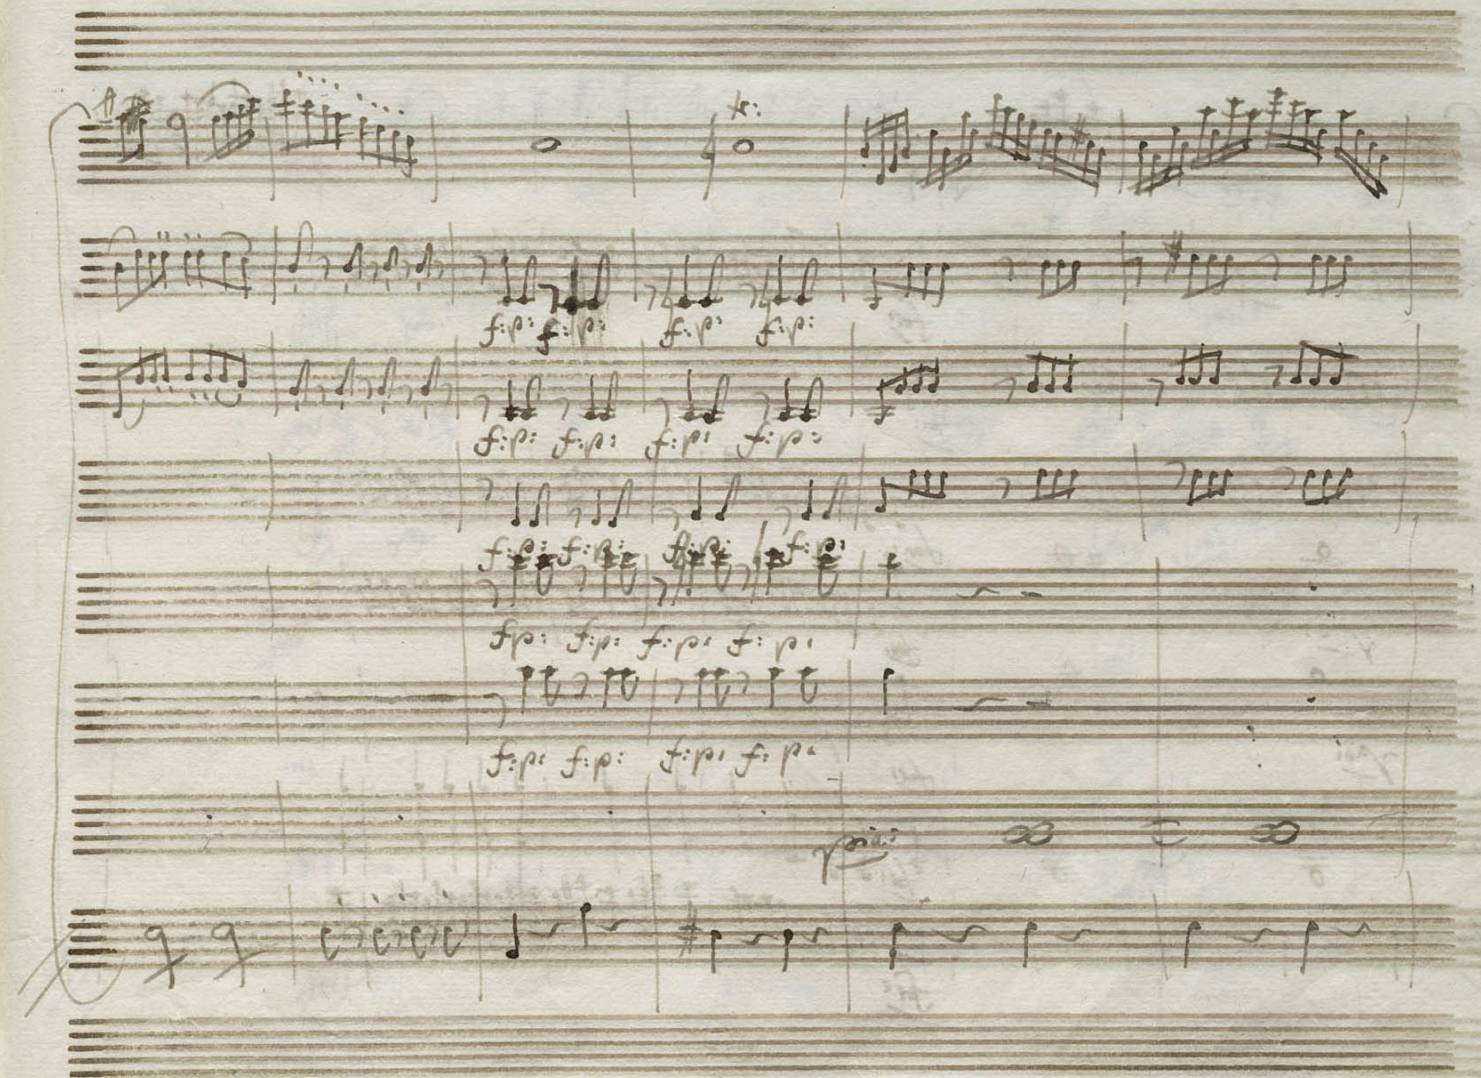 tr:
f:p: f:p: f:p: f:p:
f:p: f:p: f:p: f:p:
f:p: f:p: f:p: f:p:
fp: f:p: f:p: f: p:
f:p: f:p: f:p: f: p:
pia: